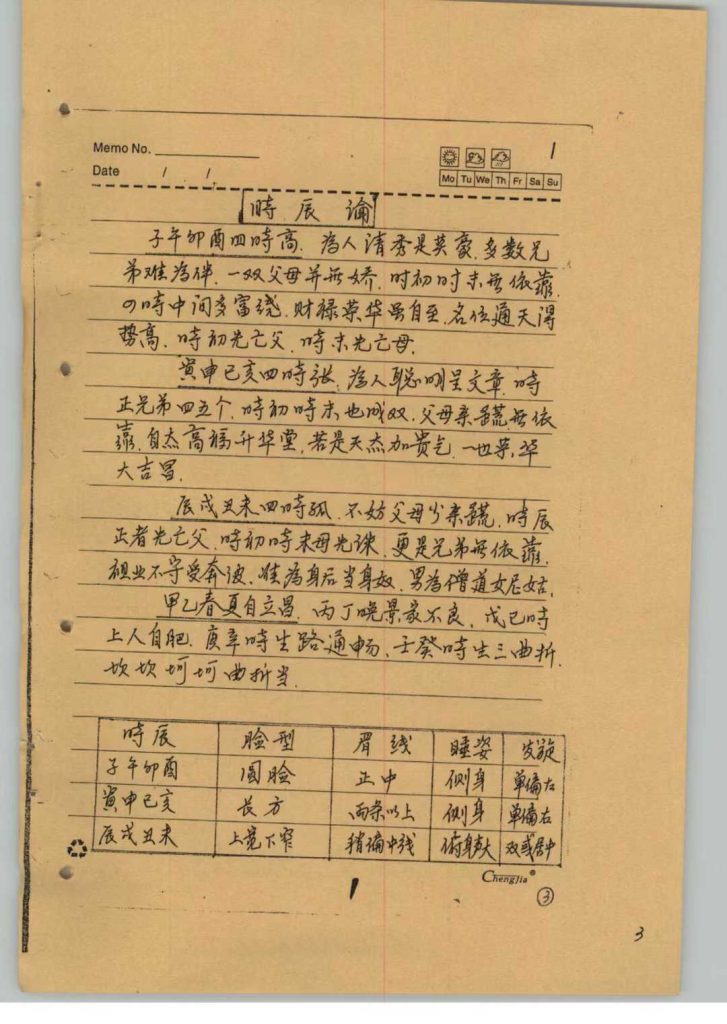 1
Memo No.
Date / /
Mo Tu We Th Fr Sa Su
時辰論
子午卯酉四時高. 為人清秀是英豪. 多数兄
弟难為伴. 一双父母并無娇. 时初时末無依靠.
时中间多富绕. 财禄荣华虽自至. 名位通天得
势高. 時初先亡父. 時末先亡母.
寅申已亥四時张. 為人聪明呈文章. 時
正兄弟四五个. 時初時末也成双. 父母亲疏無依
靠. 自杰高福升华堂. 若是天杰加贵气. 一世荣华
大吉昌.
辰戌丑未四時孤. 不妨父母少亲疏. 時辰
正者先亡父. 時初時末母先诛. 更是兄弟無依靠.
祖业不守受奔波. 难為身后当身奴. 男為僧道女尼姑.
甲乙春夏自立昌. 丙丁晚景家不良. 戊已時
上人自肥. 庚辛時生路通畅. 壬癸時生三曲折.
坎坎坷坷曲折当.
時辰 脸型 眉线 睡姿 发旋
子午卯酉 圆脸 正中 侧身 单偏左
寅申已亥 长方 两条以上 侧身 单偏右
辰戌丑未 上宽下窄 稍偏中线 俯身 双或居中
ChengJia
1
③
3